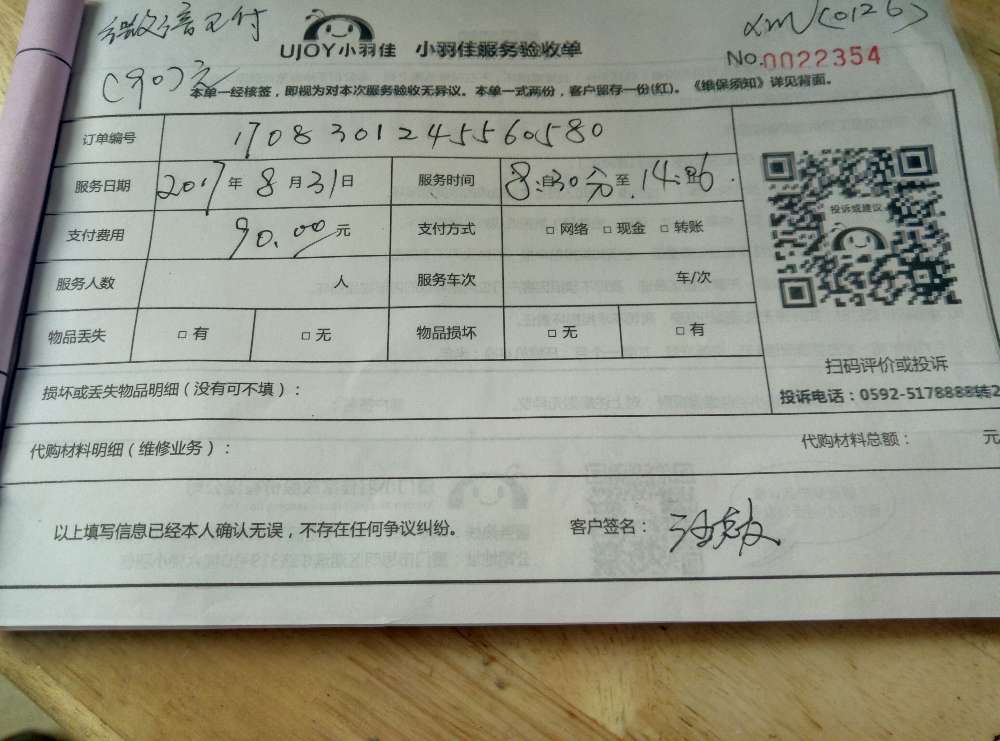 微信支付
XM(0126)
UJOY小羽佳 小羽佳服务验收单
No.0022354
(90)元
本单一经核签，即视为对本次服务验收无异议。本单一式两份，客户留存一份(红)。《维保须知》详见背面。
订单编号 1708301245560580
服务日期 2017年8月31日 服务时间 8:30自至14:
支付费用 90.00元 支付方式 □ 网络 □ 现金 □ 转账
投诉或建议
服务人数 人 服务车次 车/次
物品丢失 □ 有 □ 无 物品损坏 □ 无 □ 有
扫码评价或投诉
损坏或丢失物品明细（没有可不填）：
投诉电话：0592-5178888转2
代购材料明细（维修业务）： 代购材料总额： 元
以上填写信息已经本人确认无误，不存在任何争议纠纷。 客户签名：